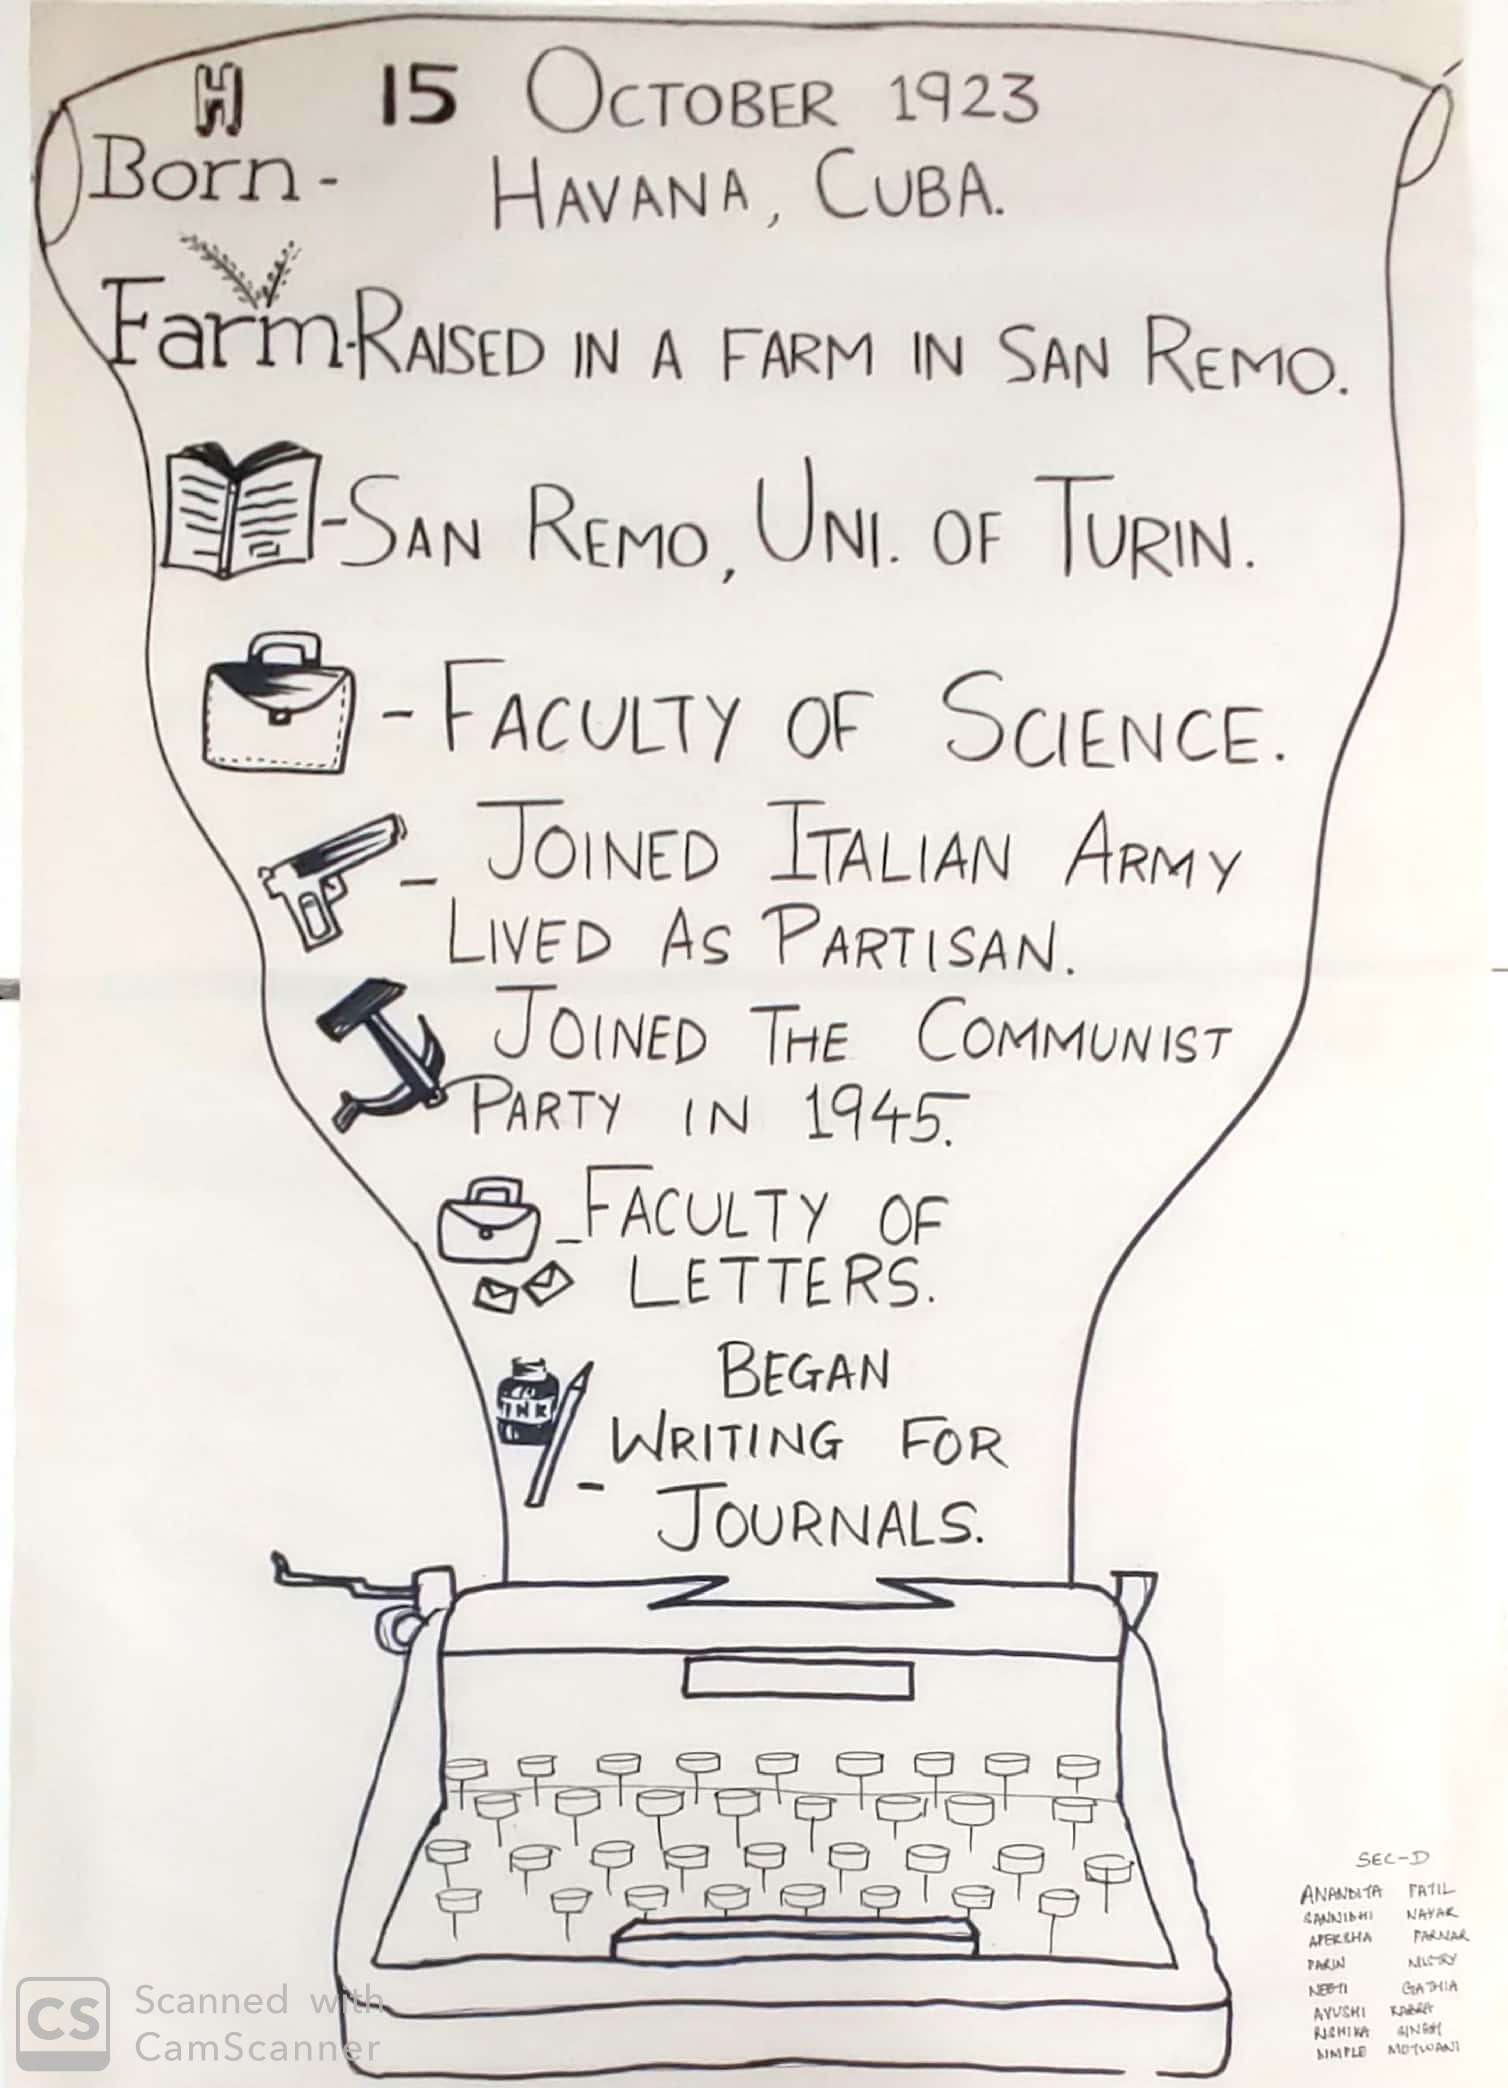 H 15 OCTOBER 1923
Born - HAVANA, CUBA.
Farm-RAISED IN A FARM IN SAN REMO.
-SAN REMO, UNI. OF TURIN.
- FACULTY OF SCIENCE.
- JOINED ITALIAN ARMY
LIVED AS PARTISAN.
JOINED THE COMMUNIST
PARTY IN 1945.
- FACULTY OF
LETTERS.
INK
BEGAN
- WRITING FOR
JOURNALS.
SEC-D
ANANDITA PATIL
SANNIDHI NAYAR
APEKSHA PARNAR
PARIN MISTRY
NEETI GATHIA
AYUSHI KABRA
RISHIKA SINGH
DIMPLE MOTWANI
CS
Scanned with
CamScanner